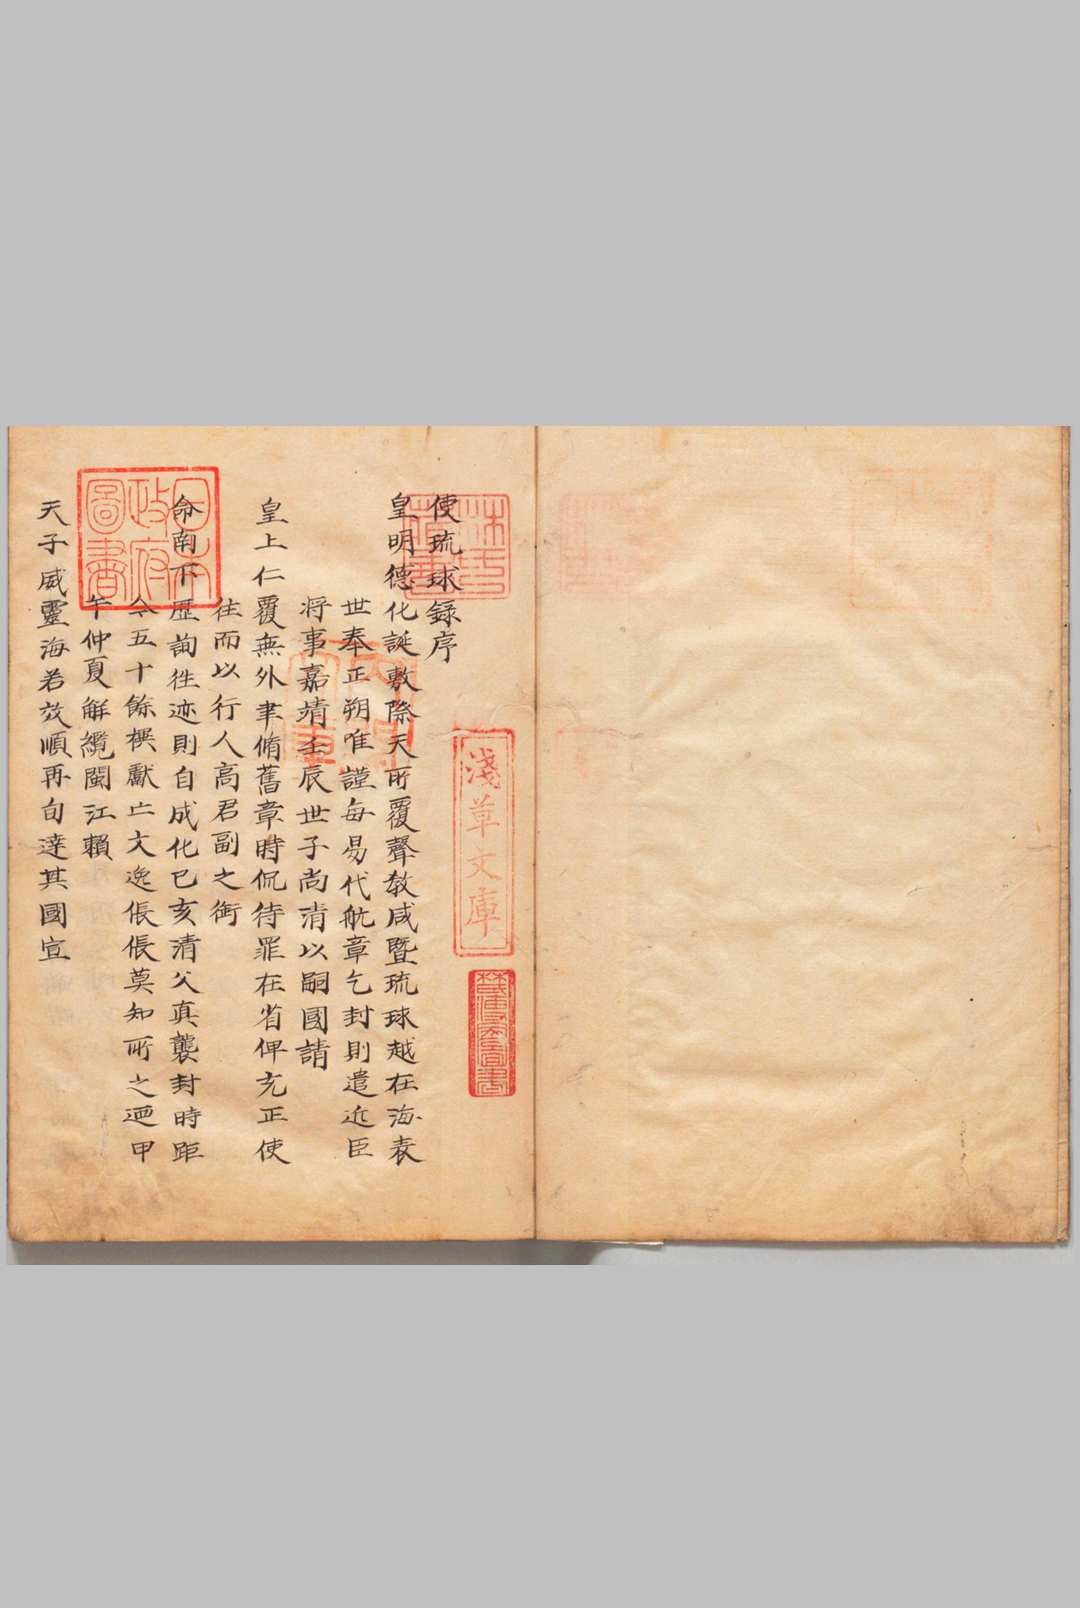 林氏藏書
淺草文庫
使琉球録序
皇明德化誕敷際天所覆聲教咸暨琉球越在海表
世奉正朔唯謹每易代航章乞封則遣近臣
将事嘉靖壬辰世子尚清以嗣國請
皇上仁覆無外聿脩舊章時侃待罪在省俾充正使
往而以行人高君副之銜
命南下歴詢徃迹則自成化已亥清父真襲封時距
今五十餘禩獻亡文逸倀倀莫知所之廼甲
午仲夏解纜閩江賴
天子威靈海若效順再旬達其國宣
日本政府圖書